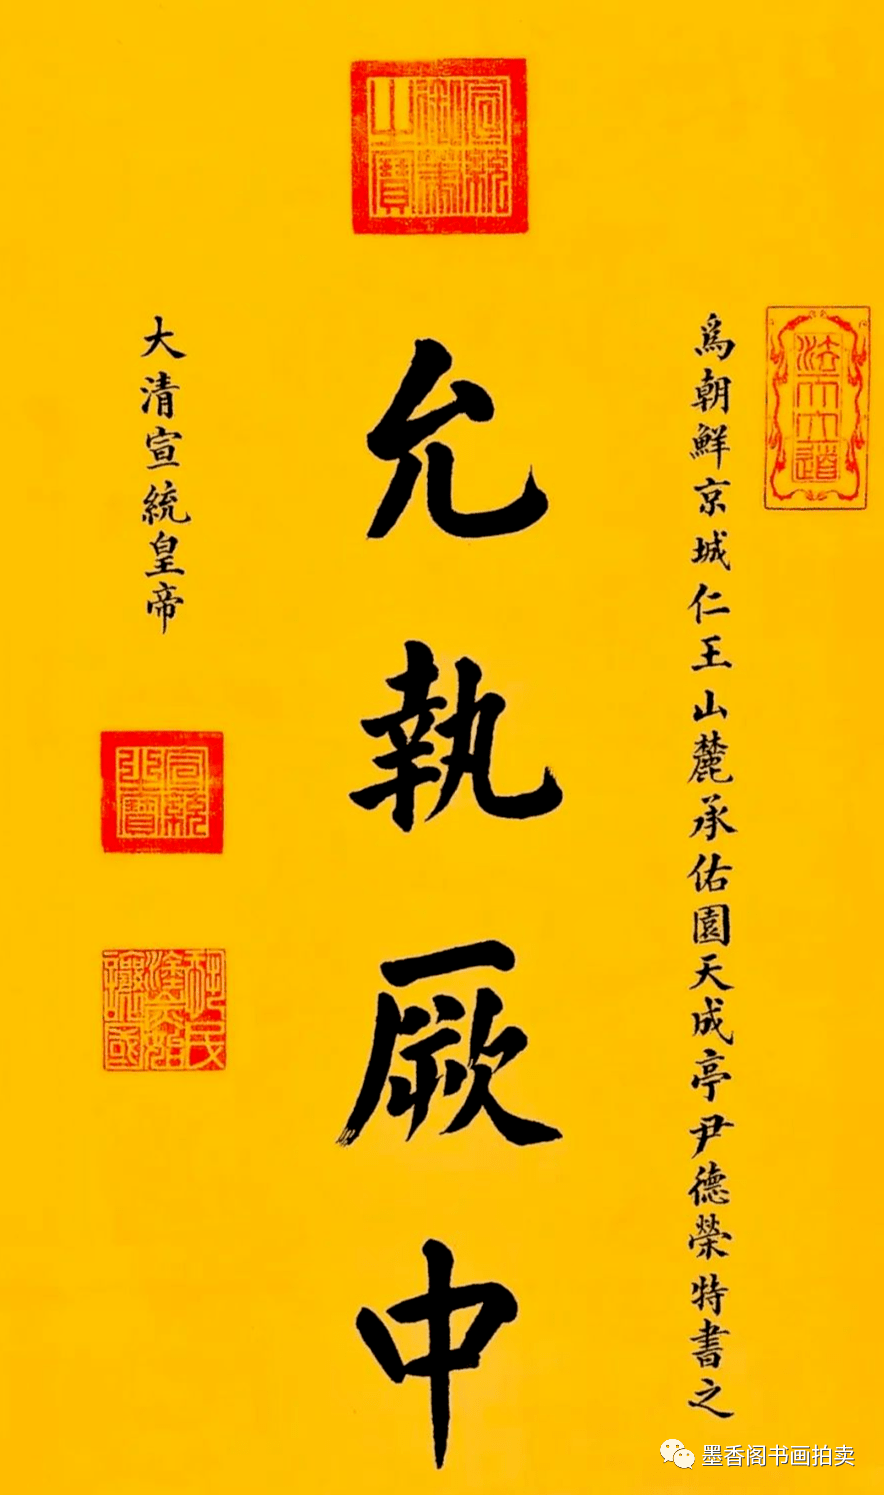 宣統御筆之寶
法天立道
爲朝鮮京城仁王山麓承佑園天成亭尹德榮特書之
允執厥中
大清宣統皇帝
宣統之寶
墨香阁书画拍卖